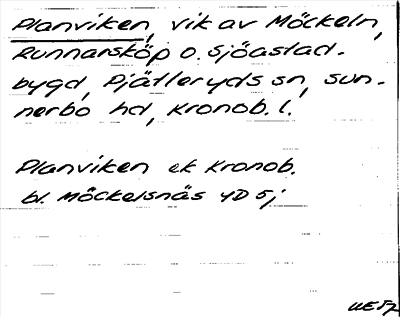 Planviken, vik av Möckeln,
Runnarsköp o. Sjöastad-
bygd, Pjätteryds sn, Sun-
nerbo hd, Kronob. l.
Planviken ek Kronob.
bl. Möckelsnäs 4D 5j